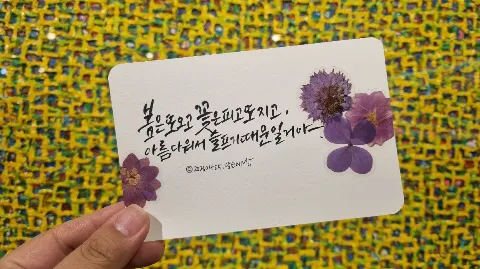 봄은 또 오고 꽃은 피고 또 지고,
아름다워서 슬프기 때문일 거야